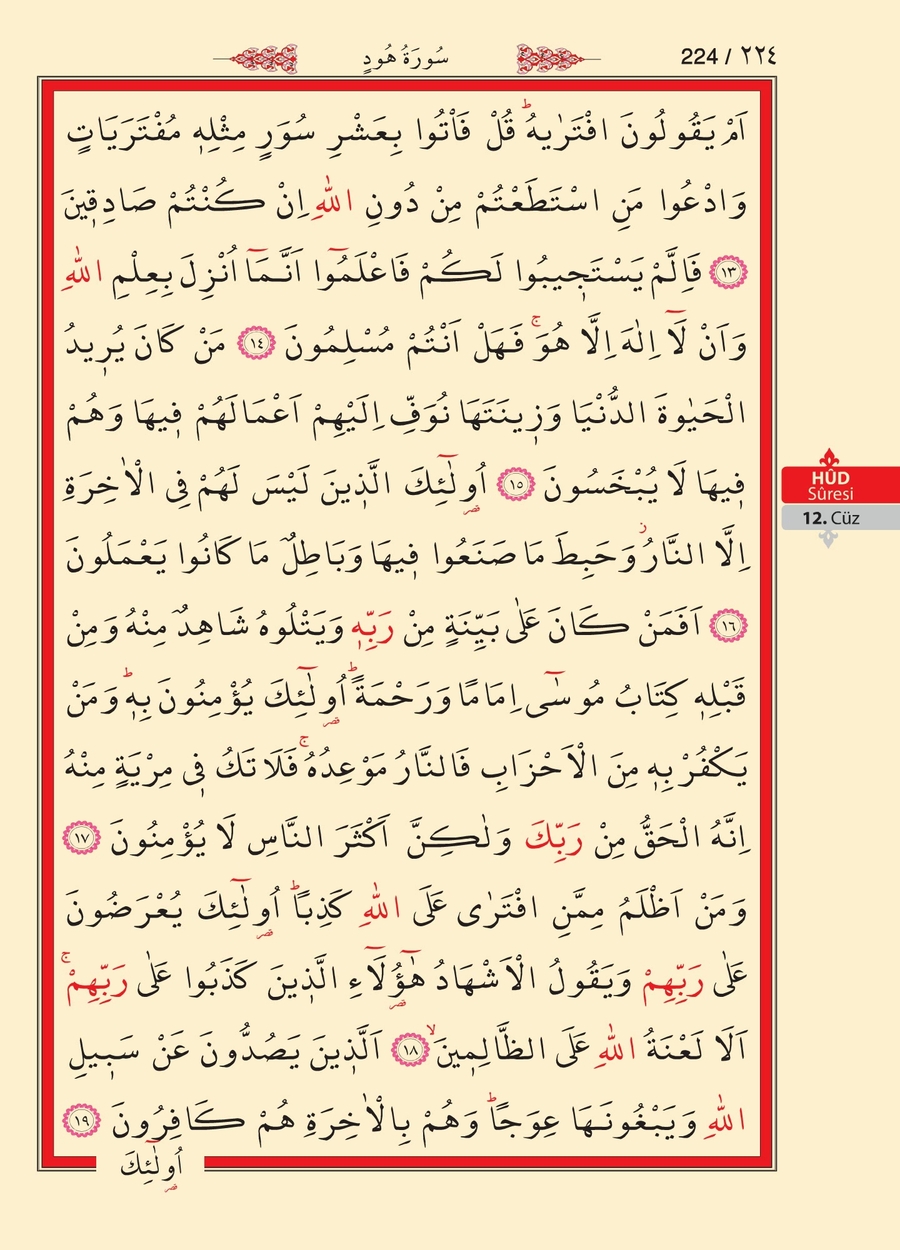 سُورَةُ هُودٍ
224 / ٢٢٤
اَمْ يَقُولُونَ افْتَرٰيهُۜ قُلْ فَأْتُوا بِعَشْرِ سُوَرٍ مِثْلِه۪ مُفْتَرَيَاتٍ
وَادْعُوا مَنِ اسْتَطَعْتُمْ مِنْ دُونِ اللّٰهِ اِنْ كُنْتُمْ صَادِق۪ينَ
﴿١٣﴾ فَاِلَّمْ يَسْتَج۪يبُوا لَكُمْ فَاعْلَمُٓوا اَنَّمَٓا اُنْزِلَ بِعِلْمِ اللّٰهِ
وَاَنْ لَٓا اِلٰهَ اِلَّا هُوَۚ فَهَلْ اَنْتُمْ مُسْلِمُونَ ﴿١٤﴾ مَنْ كَانَ يُر۪يدُ
الْحَيٰوةَ الدُّنْيَا وَز۪ينَتَهَا نُوَفِّ اِلَيْهِمْ اَعْمَالَهُمْ ف۪يهَا وَهُمْ
ف۪يهَا لَا يُبْخَسُونَ ﴿١٥﴾ اُو۬لٰٓئِكَ الَّذ۪ينَ لَيْسَ لَهُمْ فِي الْاٰخِرَةِ
اِلَّا النَّارُۘ وَحَبِطَ مَا صَنَعُوا ف۪يهَا وَبَاطِلٌ مَا كَانُوا يَعْمَلُونَ
﴿١٦﴾ اَفَمَنْ كَانَ عَلٰى بَيِّنَةٍ مِنْ رَبِّه۪ وَيَتْلُوهُ شَاهِدٌ مِنْهُ وَمِنْ
قَبْلِه۪ كِتَابُ مُوسٰٓى اِمَامًا وَرَحْمَةًۜ اُو۬لٰٓئِكَ يُؤْمِنُونَ بِه۪ۜ وَمَنْ
يَكْفُرْ بِه۪ مِنَ الْاَحْزَابِ فَالنَّارُ مَوْعِدُهُۚ فَلَا تَكُ ف۪ي مِرْيَةٍ مِنْهُ
اِنَّهُ الْحَقُّ مِنْ رَبِّكَ وَلٰكِنَّ اَكْثَرَ النَّاسِ لَا يُؤْمِنُونَ ﴿١٧﴾
وَمَنْ اَظْلَمُ مِمَّنِ افْتَرٰى عَلَى اللّٰهِ كَذِبًاۜ اُو۬لٰٓئِكَ يُعْرَضُونَ
عَلٰى رَبِّهِمْ وَيَقُولُ الْاَشْهَادُ هٰٓؤُ۬لَٓاءِ الَّذ۪ينَ كَذَبُوا عَلٰى رَبِّهِمْۚ
اَلَا لَعْنَةُ اللّٰهِ عَلَى الظَّالِم۪ينَۙ ﴿١٨﴾ اَلَّذ۪ينَ يَصُدُّونَ عَنْ سَب۪يلِ
اللّٰهِ وَيَبْغُونَهَا عِوَجًاۜ وَهُمْ بِالْاٰخِرَةِ هُمْ كَافِرُونَ ﴿١٩﴾
اُو۬لٰٓئِكَ
HÛD
Sûresi
12. Cüz